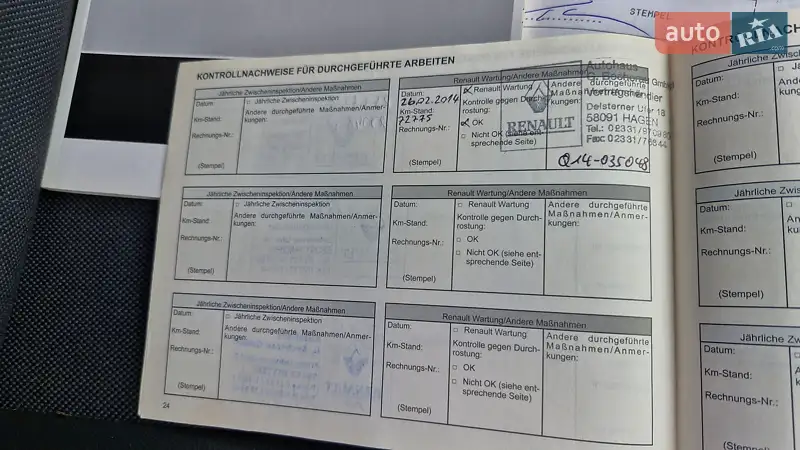 STEMPEL
auto RIA.com
KONTROLLNACHWEISE FÜR DURCHGEFÜHRTE ARBEITEN
Jährliche Zwischeninspektion/Andere Maßnahmen
Datum:
□ Jährliche Zwischeninspektion
Andere durchgeführte Maßnahmen/Anmer-
kungen:
Km-Stand:
Rechnungs-Nr.:
(Stempel)
Renault Wartung/Andere Maßnahmen
Datum:
26.02.2014
Km-Stand:
72775
Rechnungs-Nr.:
(Stempel)
Renault Wartung
Kontrolle gegen Durch-
rostung:
OK
Nicht OK (siehe ent-
sprechende Seite)
Andere durchgeführte
Maßnahmen/Anmer-
kungen:
RENAULT
Autohaus
Vertragshändler
Delsterner Ufer 18
58091 HAGEN
Q14-035048
Jährliche Zwischeninspektion/Andere Maßnahmen
Datum:
□ Jährliche Zwischeninspektion
Andere durchgeführte Maßnahmen/Anmer-
kungen:
Km-Stand:
Rechnungs-Nr.:
(Stempel)
Renault Wartung/Andere Maßnahmen
Datum:
Km-Stand:
Rechnungs-Nr.:
(Stempel)
□ Renault Wartung
Kontrolle gegen Durch-
rostung:
□ OK
□ Nicht OK (siehe ent-
sprechende Seite)
Andere durchgeführte
Maßnahmen/Anmer-
kungen:
Jährliche Zwischeninspektion/Andere Maßnahmen
Datum:
□ Jährliche Zwischeninspektion
Andere durchgeführte Maßnahmen/Anmer-
kungen:
Km-Stand:
Rechnungs-Nr.:
(Stempel)
Renault Wartung/Andere Maßnahmen
Datum:
Km-Stand:
Rechnungs-Nr.:
(Stempel)
□ Renault Wartung
Kontrolle gegen Durch-
rostung:
□ OK
□ Nicht OK (siehe ent-
sprechende Seite)
Andere durchgeführte
Maßnahmen/Anmer-
kungen:
24
Jährliche
Datum:
Km-Stand:
Rechnungs-Nr.:
(Stempel)
Jährliche Zw
Datum:
Km-Stand:
Rechnungs-Nr.:
(Stempel)
Jährliche Zw
Datum:
Km-Stand:
Rechnungs-Nr.:
(Stempel)